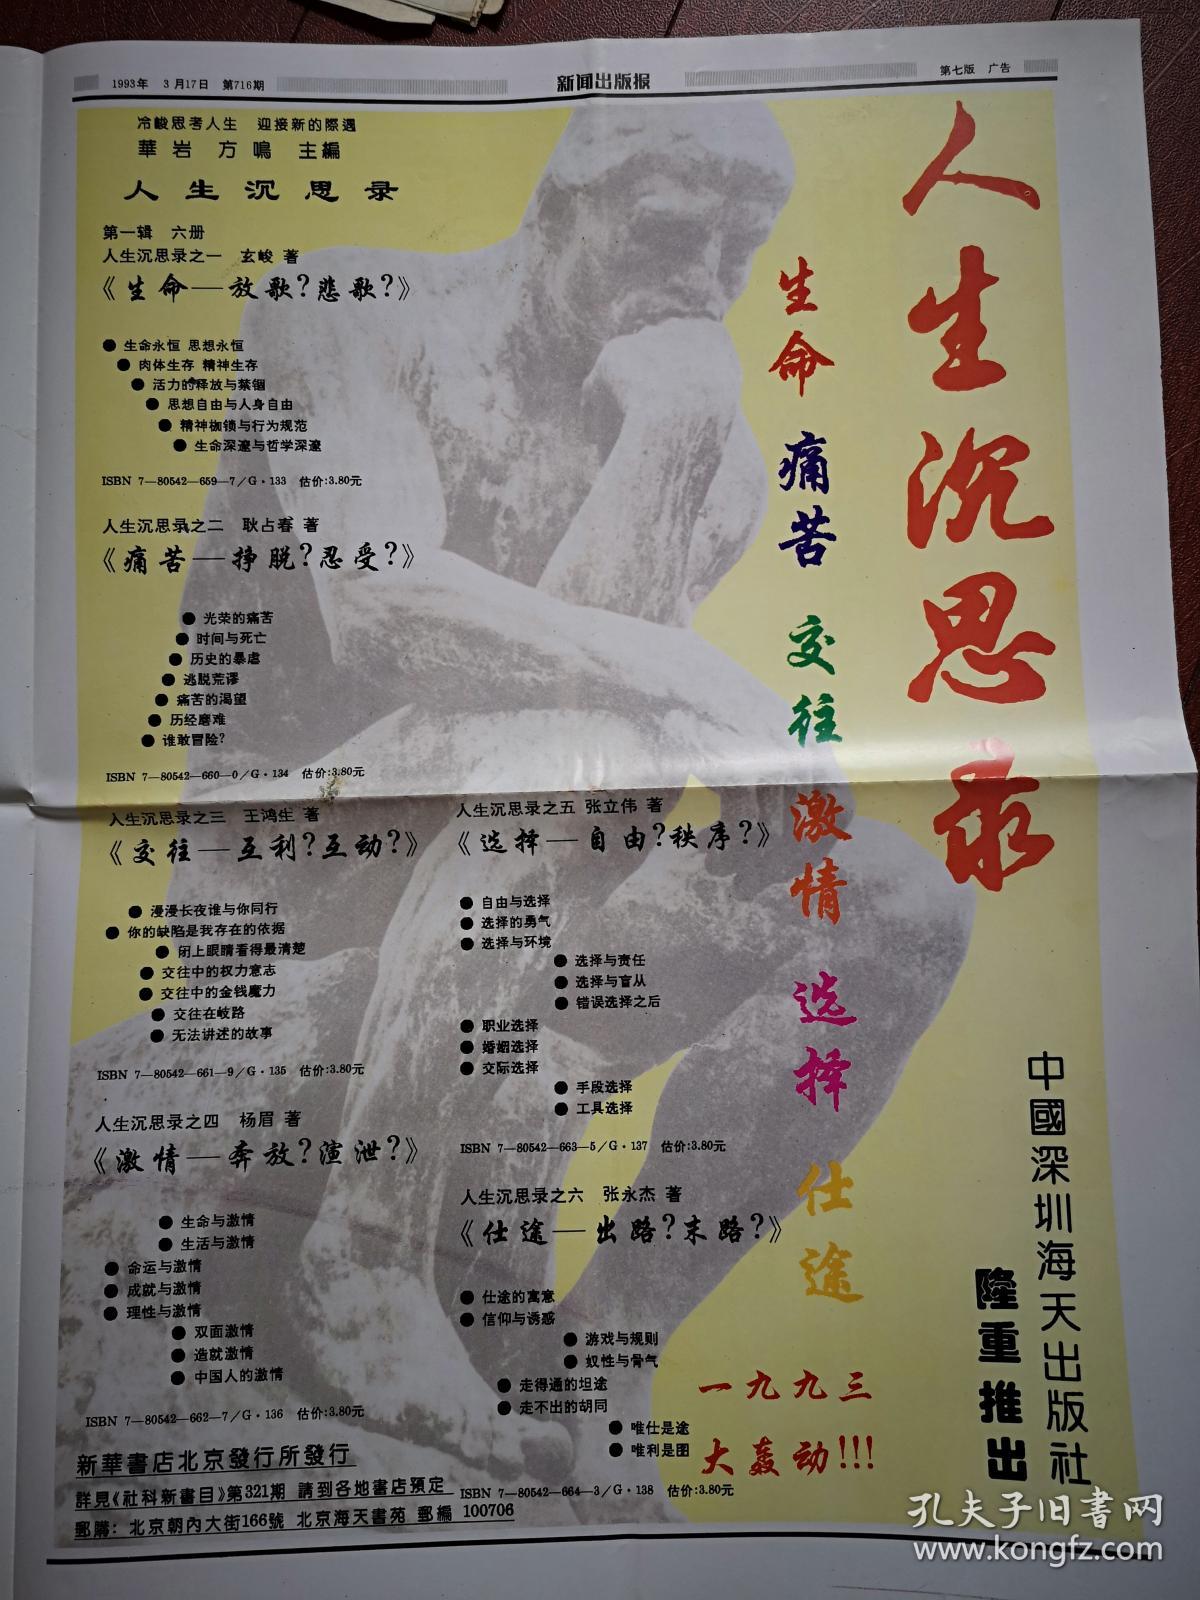 1993年 3月17日 第716期
新闻出版报
第七版 广告
冷峻思考人生 迎接新的際遇
華岩 方鳴 主編
人生沉思录
第一辑 六册
人生沉思录之一 玄峻 著
《生命—放歌?悲歌?》
● 生命永恒 思想永恒
● 肉体生存 精神生存
● 活力的释放与禁锢
● 思想自由与人身自由
● 精神枷锁与行为规范
● 生命深邃与哲学深邃
ISBN 7—80542—659—7/G·133 估价:3.80元
人生沉思录之二 耿占春 著
《痛苦—挣脱?忍受?》
● 光荣的痛苦
● 时间与死亡
● 历史的暴虐
● 逃脱荒谬
● 痛苦的渴望
● 历经磨难
● 谁敢冒险?
ISBN 7—80542—660—0/G·134 估价:3.80元
人生沉思录之三 王鸿生 著
《交往—互利?互动?》
● 漫漫长夜谁与你同行
● 你的缺陷是我存在的依据
● 闭上眼睛看得最清楚
● 交往中的权力意志
● 交往中的金钱魔力
● 交往在岐路
● 无法讲述的故事
ISBN 7—80542—661—9/G·135 估价:3.80元
人生沉思录之四 杨眉 著
《激情—奔放?渲泄?》
● 生命与激情
● 生活与激情
● 命运与激情
● 成就与激情
● 理性与激情
● 双面激情
● 造就激情
● 中国人的激情
ISBN 7—80542—662—7/G·136 估价:3.80元
人生沉思录之五 张立伟 著
《选择—自由?秩序?》
● 自由与选择
● 选择的勇气
● 选择与环境
● 选择与责任
● 选择与盲从
● 错误选择之后
● 职业选择
● 婚姻选择
● 交际选择
● 手段选择
● 工具选择
ISBN 7—80542—663—5/G·137 估价:3.80元
人生沉思录之六 张永杰 著
《仕途—出路?末路?》
● 仕途的寓意
● 信仰与诱惑
● 游戏与规则
● 奴性与骨气
● 走得通的坦途
● 走不出的胡同
● 唯仕是途
● 唯利是图
ISBN 7—80542—664—3/G·138 估价:3.80元
新華書店北京發行所發行
詳見《社科新書目》第321期 請到各地書店預定
郵購: 北京朝內大街166號 北京海天書苑 郵編 100706
人生沉思录
生命 痛苦 交往 激情 选择 仕途
一九九三
大轰动!!!
中國深圳海天出版社
隆重推出
孔夫子旧书网
www.kongfz.com